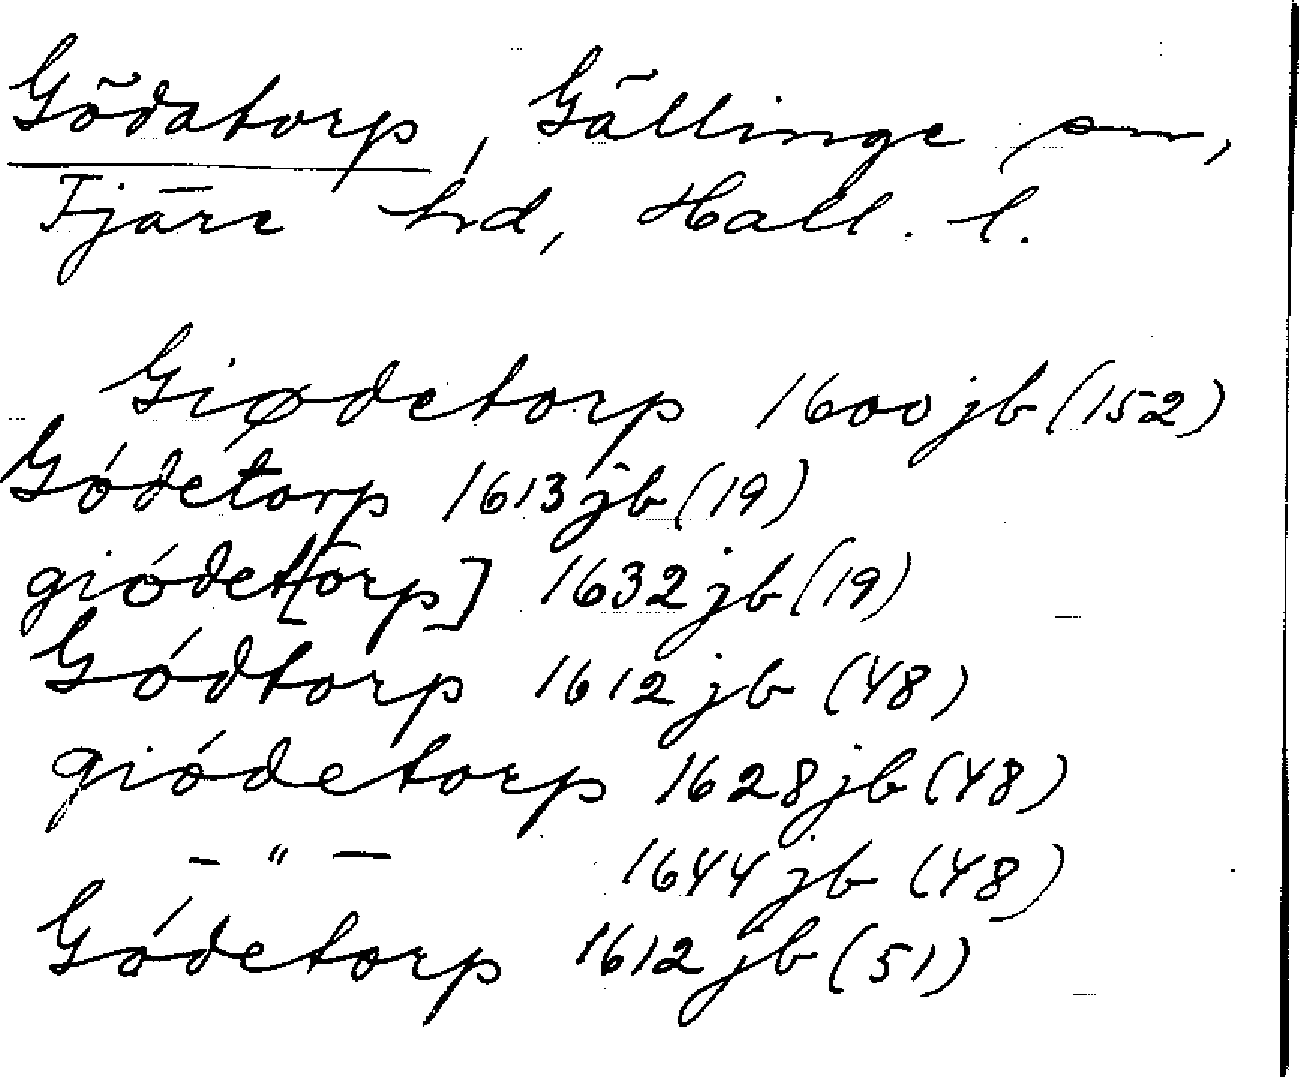 Gödatorp, Gällinge sn,
Fjäre hrd, Hall. l.
Giødetorp 1600 jb (152)
Gódetorp 1613 jb (19)
giódet[orp] 1632 jb (19)
Gódtorp 1612 jb (48)
giódetorp 1628 jb (48)
— " — 1644 jb (48)
Gódetorp 1612 jb (51)